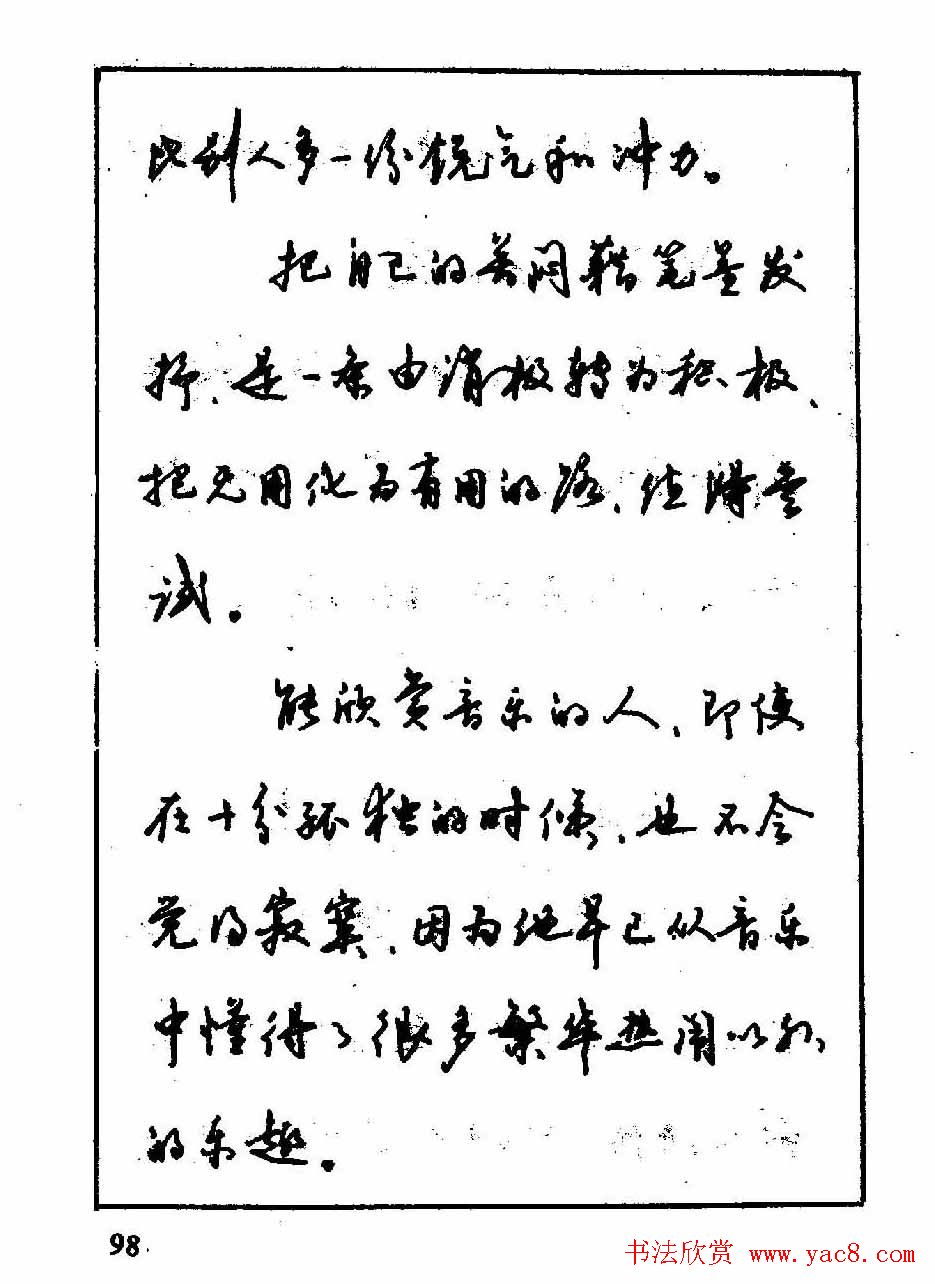 比别人多一份锐气和冲力。
把自己的苦闷藉笔墨发
抒，是一条由消极转为积极、
把无用化为有用的路，值得尝
试。
能欣赏音乐的人，即使
在十分孤独的时候，也不会
觉得寂寞，因为他早已从音乐
中懂得了很多繁华热闹以外
的乐趣。
98
书法欣赏 www.yac8.com